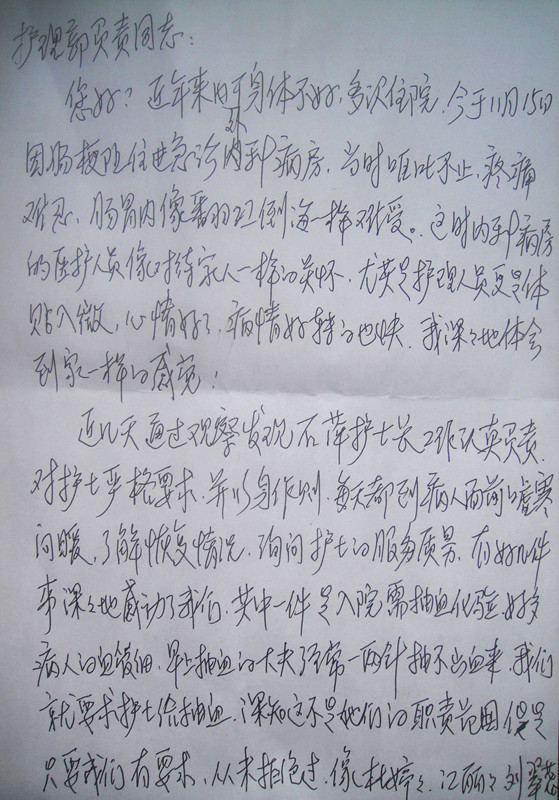 护理部负责同志：
您好？近年来由于身体不好，多次住院，今于11月15日
因肠梗阻住进急诊内科病房，当时呕吐不止，疼痛
难忍，肠胃内像番江倒海一样难受。这时内科病房
的医护人员像对待家人一样的关怀，尤其是护理人员更是体
贴入微，心情好了，病情好转的也快，我深深地体会
到家一样的感觉！
近几天通过观察发现石萍护士长工作认真负责，
对护士严格要求，并以身作则，每天都到病人面前嘘寒
问暖，了解恢复情况，询问护士的服务质量，有好几件
事深深地感动了我们，其中一件是入院需抽血化验好多
病人的血管细，早上抽血的大夫经常一两针抽不出血来，我们
就要求护士给抽血，深知这不是她们的职责范围，但是
只要我们有要求，从未拒绝过，像杜婷婷、江丽丽、刘